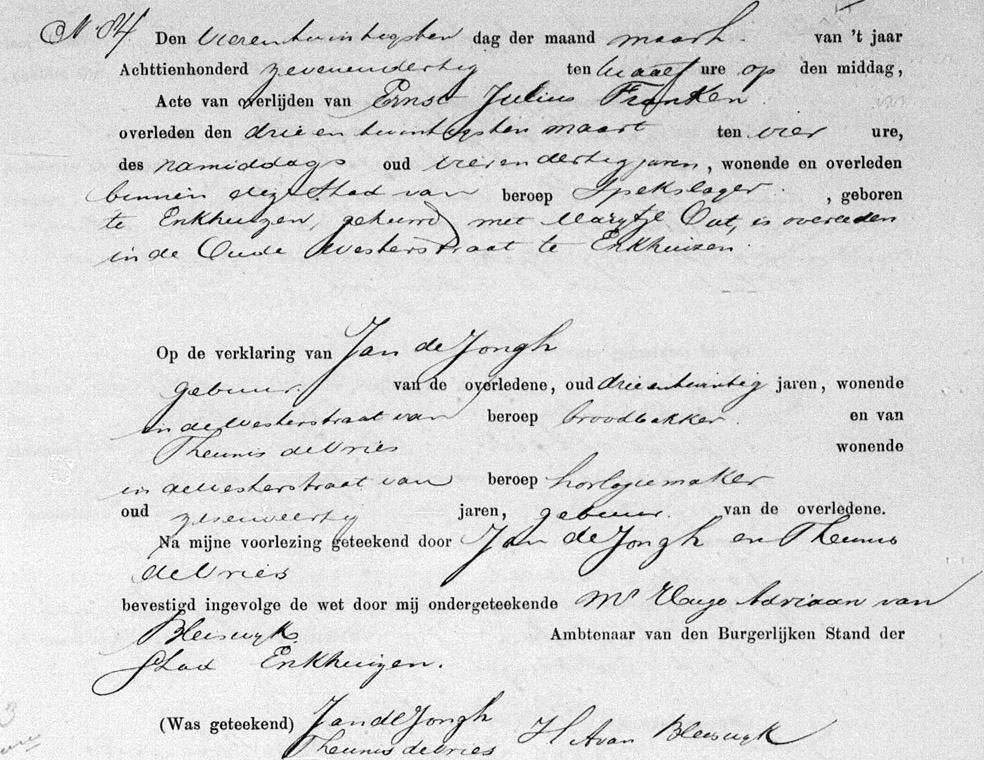 N 84 Den vierentwintigsten dag der maand maart van 't jaar
Achttienhonderd zevenendertig ten twaalf ure op den middag,
Acte van overlijden van Ernst Julius Franken
overleden den drieentwintigsten maart ten vier ure,
des namiddags oud vierendertig jaren, wonende en overleden
binnen deze Stad van beroep Spekslager, geboren
te Enkhuizen, gehuwd met Marijtje Out, is overleden
in de Oude Westerstraat te Enkhuizen.
Op de verklaring van Jan de Jongh
gebuur van de overledene, oud drieentwintig jaren, wonende
in de Westerstraat van beroep broodbakker en van
Theunis de Vries wonende
in de Westerstraat van beroep horlogiemaker
oud zesenveertig jaren, gebuur van de overledene.
Na mijne voorlezing geteekend door Jan de Jongh en Theunis
de Vries
bevestigd ingevolge de wet door mij ondergeteekende Mr Hugo Adriaan van
Bleiswyk Ambtenaar van den Burgerlijken Stand der
Stad Enkhuizen.
(Was geteekend) Jan de Jongh H A van Bleiswyk
Theunis de Vries